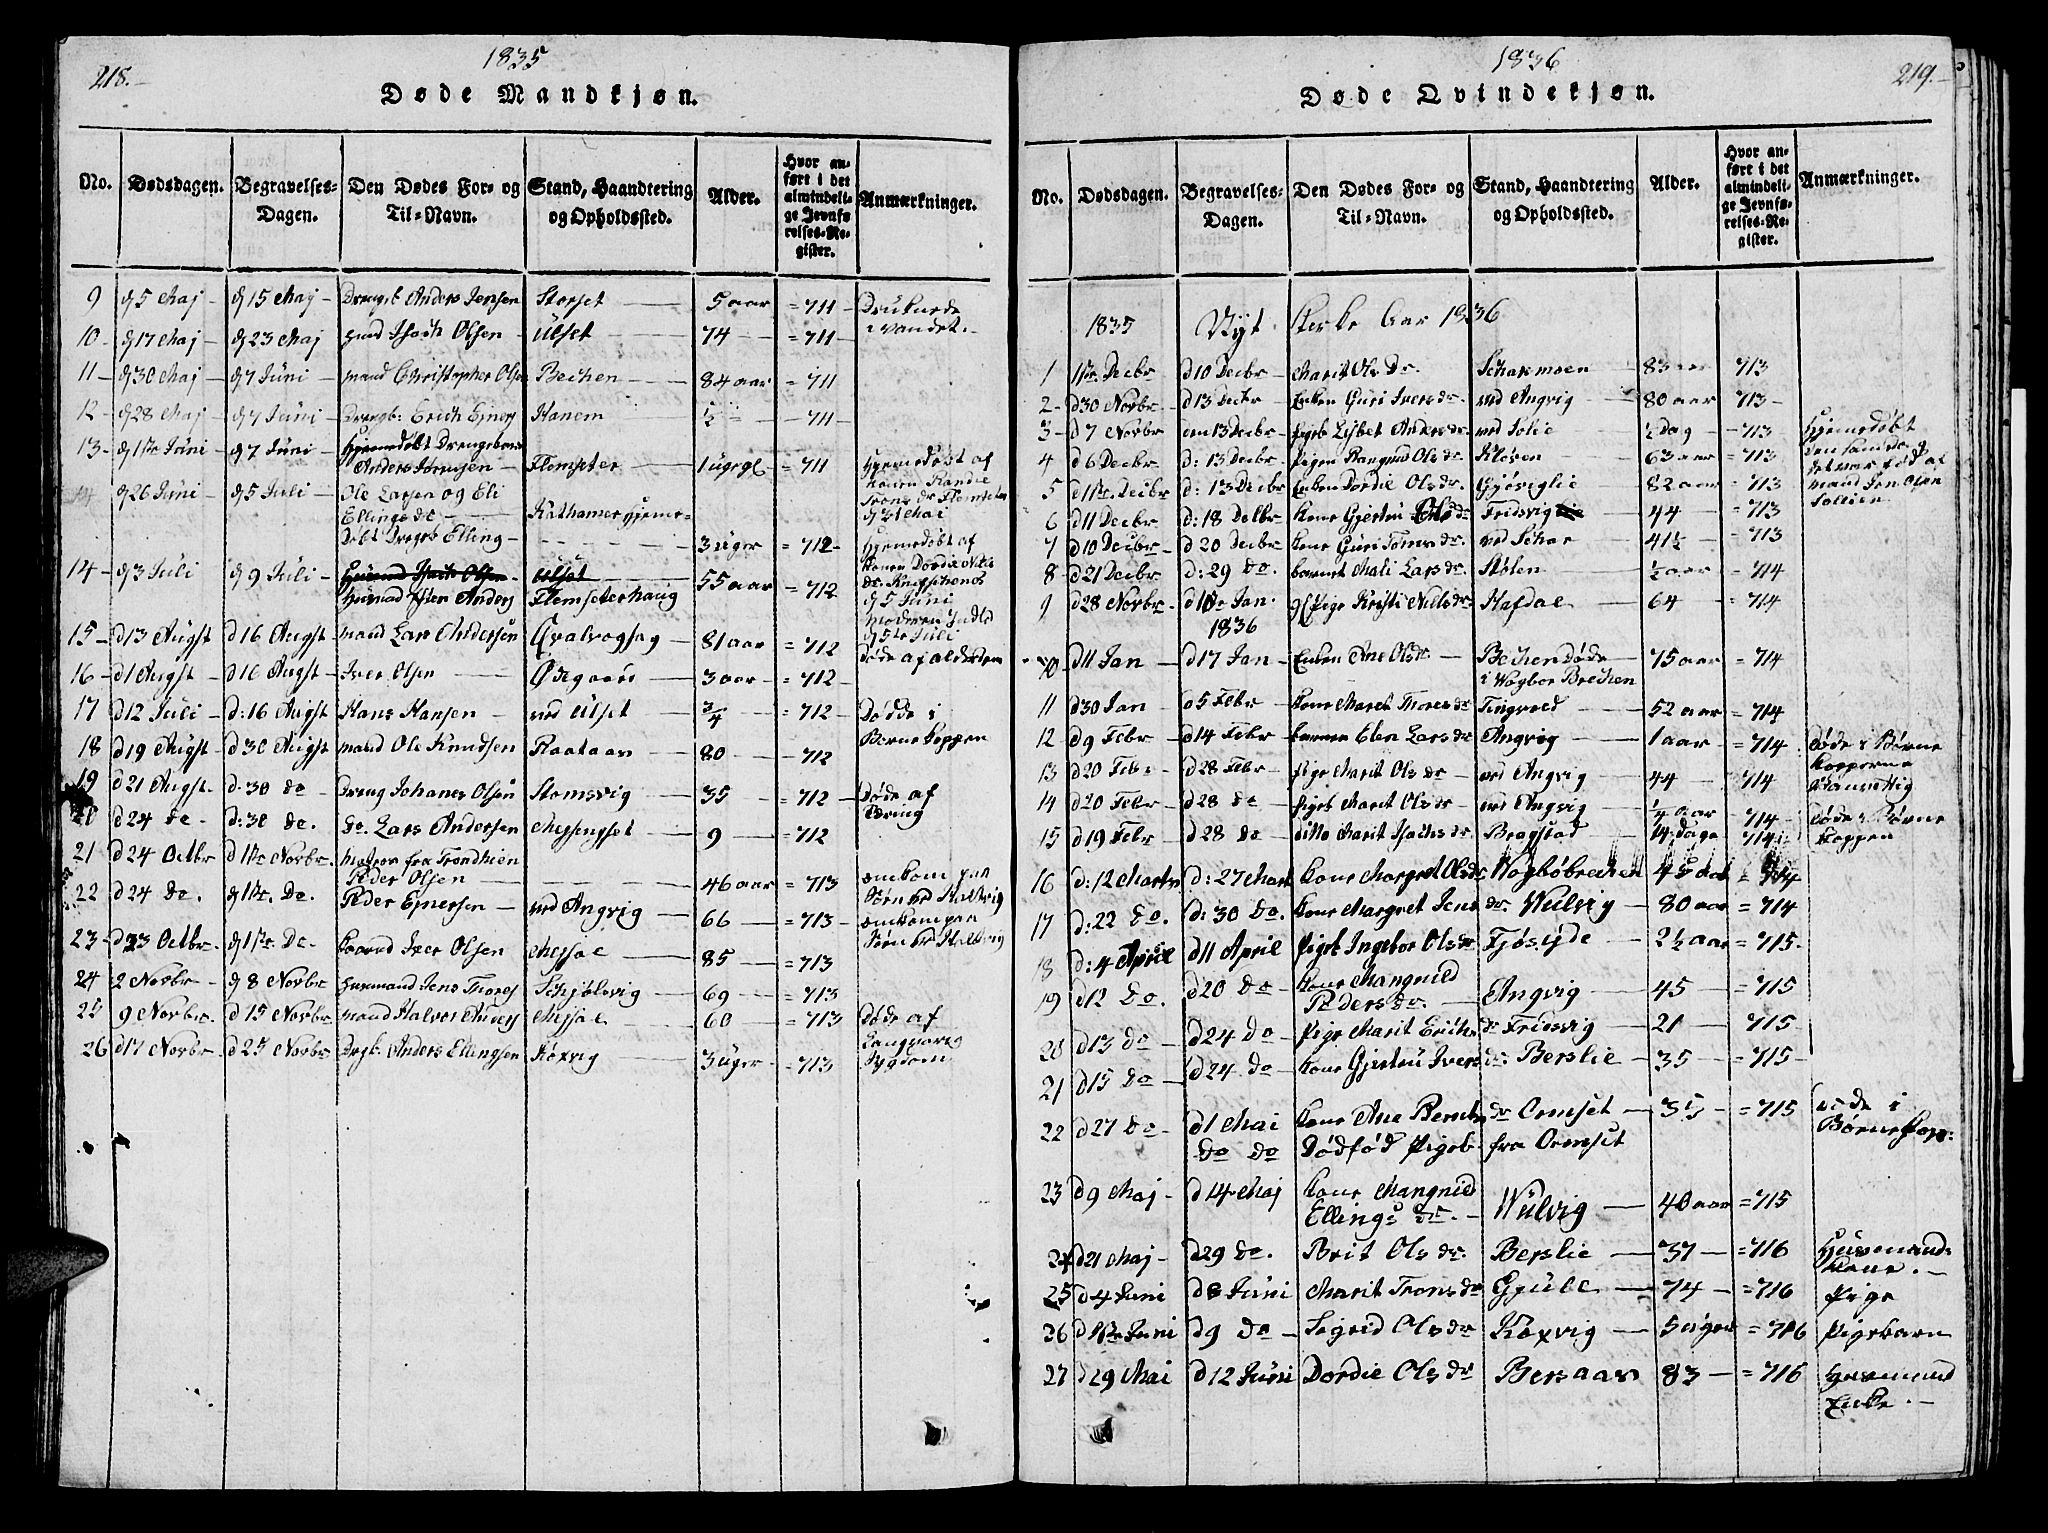 218.
1835
Døde Mandkjøn.
No. Dødsdagen. Begravelses-Dagen. Den Dødes For- og Til-Navn. Stand, Haandtering og Opholdssted. Alder. Hvor anført i det almindelige Jevnførelses-Register. Anmærkninger.
9 d 5 Maj d 15 Maj Drengb Anders Jensen Storset 5 aar = 711 Druknede i vandet.
10 d 17 Maj d 23 Maj Isach Olsen Ulset 74 = 711
11 d 30 Maj d 7 Juni mand Christopher Olsen Bechen 84 aar = 711
12 d 28 Maj d 7 Juni Drengb: Erich Ejners Hanem ½ = 711
13 d 1ste Juni d 7 Juni Hjemedøbt Drengebarn
Anders Flemseter 1 = 711 Hjemedøbt af
14 d 26 Juni d 5 Juli Ole Larsen og Eli d 31 Mai
Ellings dr hjeme-
Døbt Elling 3 uger = 712 Hjemedøbt af
14 d 3 Juli d 9 Juli Husmd Isach Olsen Ulset
Husmd Anders Flemseterhaug 55 aar = 712 d 5 Juni
15 d 13 Augst d 16 Augst mand Lars Andersen Qvalvogsag 81 aar = 712 d 5te Juli
Døde af alderdom
16 d 1 Augst d 16 Augst Iver Olsen Ødegaard 3 aar = 712
17 d 12 Juli d: 16 Augst Hans Hansen ved Ulset ¾ = 712 Dødde i
18 d 19 Augst d 30 Augst mand Ole Knudsen Raataas 80 712 Børne koppen
19 d 21 Augst d. 30 do Dreng Johanes Olsen Stomsvig 35 = 712 Døde af Tæring
20 d 24 do d: 30 do. do. Lars Andersen Messingset 9 = 712
21 d 24 Octbr d 1ste Novbr. fra Trondhien
Peder Olsen 46 aar = 713 omkom paa
22 d 24 do. d 1ste Do. Peder Ejnersen ved Angvig 66 = 713 omkom paa
23 d 23 Octbr. d 1ste Do Iver Olsen Mejsal 85 = 713
24 2 Novbr d 8 Novbr Husmand Jens Thores Schjølsvig 69 = 713
25 9 Novbr. d 15 Novbr mand Halvor Anders Mejsal 60 = 713 Døde af
Langvarig
26 d 17 Novbr d 25 Novbr Drgb. Anders Ellingsen Koxvig 3 uger = 713 Sygdom
219.
1836
Døde Qvindekjøn.
No. Dødsdagen. Begravelses-Dagen. Den Dødes For- og Til-Navn. Stand, Haandtering og Opholdssted. Alder. Hvor anført i det almindelige Jevnførelses-Register. Anmærkninger.
1835 Nyt Kerke Aar 1836
1 1ste Decbr d 10 Decbr Marit Ols Dr. Scharmoen 83 aar 713
2 d 30 Novbr d 13 Decbr Enken Guri Ivers dr. ved Angvig 80 aar 713
3 d 7 Novbr den 13 Decbr Pigeb Lisbet Anders dr. ved Solie ½ Dag = 713 Hjemedøbt
4 d 6 Decbr d: 13 Decbr Pigen Rangnid Ols dr. Kløsen 63 aar = 713
5 d 1ste Decbr d: 13 Decbr Enken Dordie Ols dr. Gjøviglie 82 aar = 713 mand Jen Olsen
6 d 11 Decbr d: 18 Decbr Kone Gjertru Ols dr Fridsvig 44 = 713
7 d 10 Decbr d 20 Decbr Kone Guri Toms dr. ved Schar 41½ = 713
8 d 21 Decbr d: 29 do. barnet Mali Lars dr. Stølen ½ aar = 714
9 d 28 Novbr d 10 Jan. Pige Kristi Nils dr Hafdal 64 = 714
1836
10 d 11 Jan d 17 Jan Enken Ane Ols dr Bechen Døde 75 aar = 714
i Vogbø Brechen
11 d 30 Jan d 5 Febr Kone Maret Thores dr Tingvold 52 aar = 714
12 d 9 Febr d 14 Febr Elen Lars dr Angvig 1 aar = 714 Døde i Børne
13 d 20 Febr d 28 Febr Pige Marit Ols dr ved Angvig 44 = 714 Kopperne
14 d 20 Febr d 28 do Pigeb Marit Ols dr ved Angvig ¼ aar = 714 Døde i Børne
15 d 19 Febr d 28 do ditto Marit Isachs dr Bragstad 14 Dage 714 Koppen
16 d: 12 Marts d: 27 Mart Kone Margret Ols dr Vogbøbrechen 45 aar = 714
17 d: 22 do. d: 30 do. Kone Margret Jens dr. Wulvig 80 aar = 714
18 d: 4 April d 11 April Pigeb Ingebor Ols dr Fjøsejde 2½ aar = 715
19 d 12 do. d 20 do Kone Mangnild
Peders dr. Angvig 45 = 715
20 d 13 do d 24 do Pige Marit Erichs dr Fridsvig 21 715
21 d 15 do d 24 do Kone Gjertru Ivers dr: Berslie 35 = 715
22 d 27 do d 1 Mai Kone Ane Bernts dr Ormset 35 = 715 Døde i
do do Dødfød Pigeb fra Ormset Børnekop:
23 d 9 Maj d 14 Maj Kone Mangnid
Ellings dr. Wulvig 40 aar = 715
24 d 21 Maj d 29 do. Brit Ols dr. Berslie 37 = 716 Husmands Kone.
25 d 4 Juni d 8 Juni Marit Trons dr Gjull 74 = 716 Pige
26 d 1ste Juni d 9 do Segrid Ols dr Koxvig 5 uger = 716 Pigebarn
27 d 29 Mai d 12 Juni Dordie Ols dr Bersaas 83 = 716 Husmand Enke.